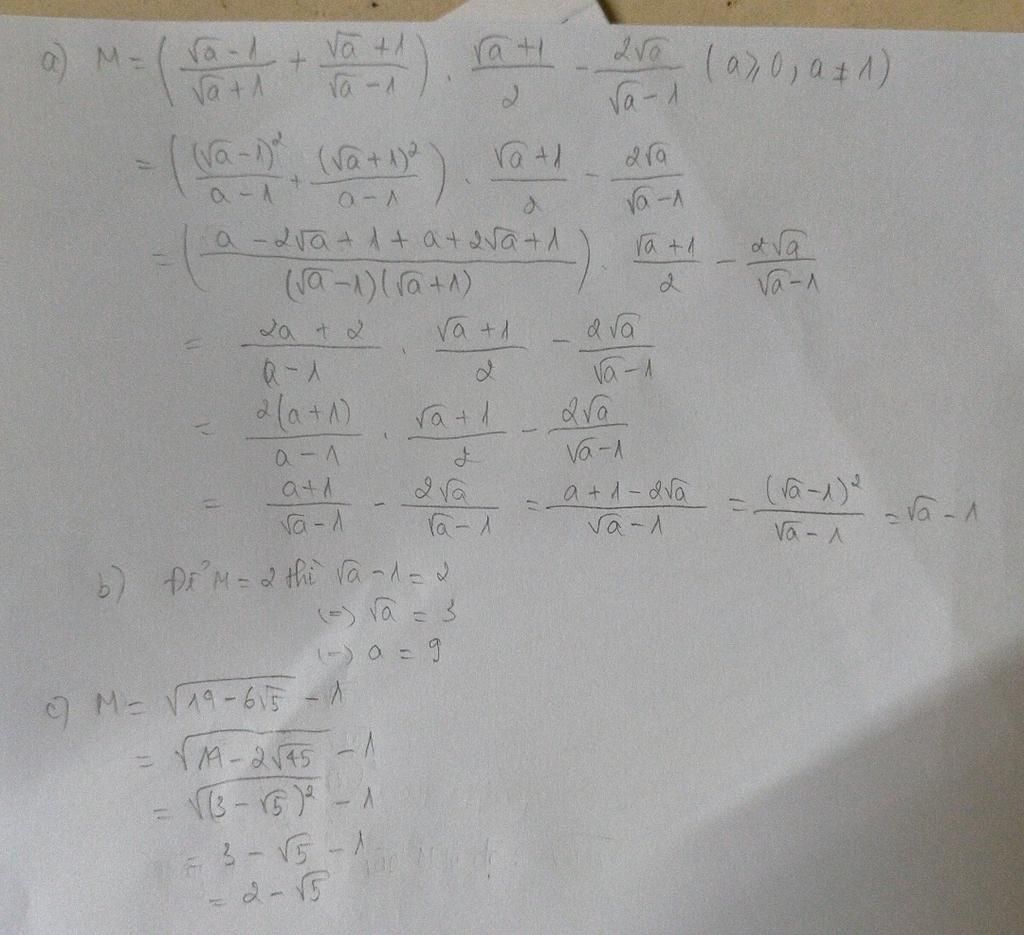 a) M = ( (√a - 1)/(√a + 1) + (√a + 1)/(√a - 1) ) . (√a + 1)/2 - 2√a/(√a - 1) (a ≥ 0, a ≠ 1)
= ( (√a - 1)²/(a - 1) + (√a + 1)²/(a - 1) ) . (√a + 1)/2 - 2√a/(√a - 1)
= ( (a - 2√a + 1 + a + 2√a + 1)/((√a - 1)(√a + 1)) ) . (√a + 1)/2 - 2√a/(√a - 1)
= (2a + 2)/(a - 1) . (√a + 1)/2 - 2√a/(√a - 1)
= 2(a + 1)/(a - 1) . (√a + 1)/2 - 2√a/(√a - 1)
= (a + 1)/(√a - 1) - 2√a/(√a - 1) = (a + 1 - 2√a)/(√a - 1) = (√a - 1)²/(√a - 1) = √a - 1
b) Để M = 2 thì √a - 1 = 2
(=) √a = 3
(=) a = 9
c) M = √(19 - 6√5) - 1
= √(14 - 2√45) - 1
= √((3 - √5)²) - 1
= 3 - √5 - 1
= 2 - √5